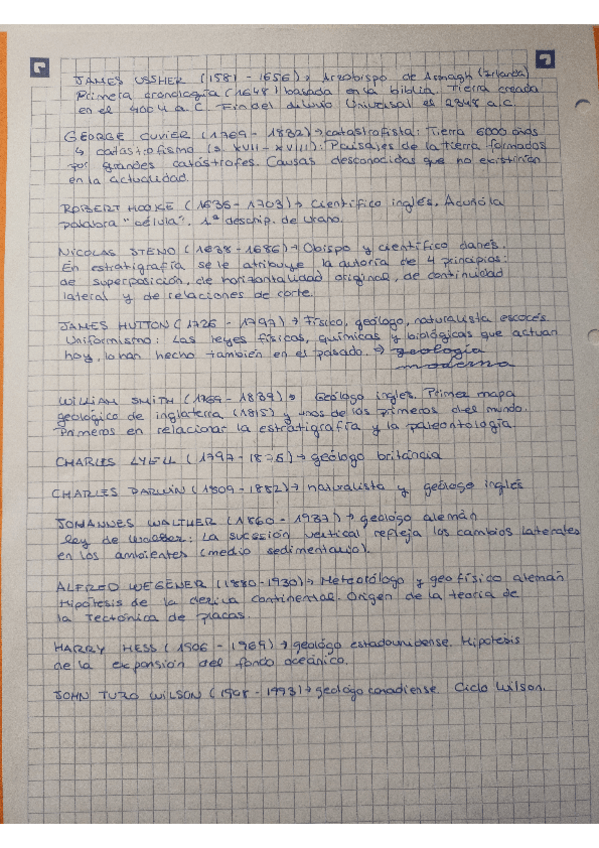 JAMES USSHER (1581 - 1656) → Arzobispo de Armagh (Irlanda)
Primera cronología (1648) basada en la biblia. Tierra creada
en el 4004 a.C. Fin del diluvio Universal el 2348 a.C.
GEORGE CUVIER (1769 - 1832) → catastrofista: Tierra 6000 años
↳ catastrofismo (s. XVII - XVIII): Paisajes de la tierra formados
por grandes catástrofes. Causas desconocidas que no existirían
en la actualidad.
ROBERT HOOKE (1635 - 1703) → Científico inglés. Acuñó la
palabra "célula". 1ª descrip. de Urano.
NICOLAS STENO (1638 - 1686) → Obispo y científico danés.
En estratigrafía se le atribuye la autoría de 4 principios:
de superposición, de horizontalidad original, de continuidad
lateral y de relaciones de corte.
JAMES HUTTON (1726 - 1797) → Físico, geólogo, naturalista escocés.
Uniformismo: Las leyes físicas, químicas y biológicas que actúan
hoy, lo han hecho también en el pasado. → geología
moderna
WILLIAM SMITH (1769 - 1839) → Geólogo inglés. Primer mapa
geológico de inglaterra (1815) y unos de los primeros del mundo.
Primeros en relacionar la estratigrafía y la paleontología.
CHARLES LYELL (1797 - 1875) → geólogo británica
CHARLES DARWIN (1809 - 1882) → naturalista y geólogo inglés
JOHANNES WALTHER (1860 - 1937) → geólogo alemán
ley de Walther: La sucesión vertical refleja los cambios laterales
en los ambientes (medio sedimentario).
ALFRED WEGENER (1880 - 1930) → Meteorólogo y geofísico alemán
Hipótesis de la deriva continental. Origen de la teoría de
la Tectónica de placas.
HARRY HESS (1906 - 1969) → geólogo estadounidense. Hipótesis
de la expansión del fondo oceánico.
JOHN TUZO WILSON (1908 - 1993) → geólogo canadiense. Ciclo Wilson.